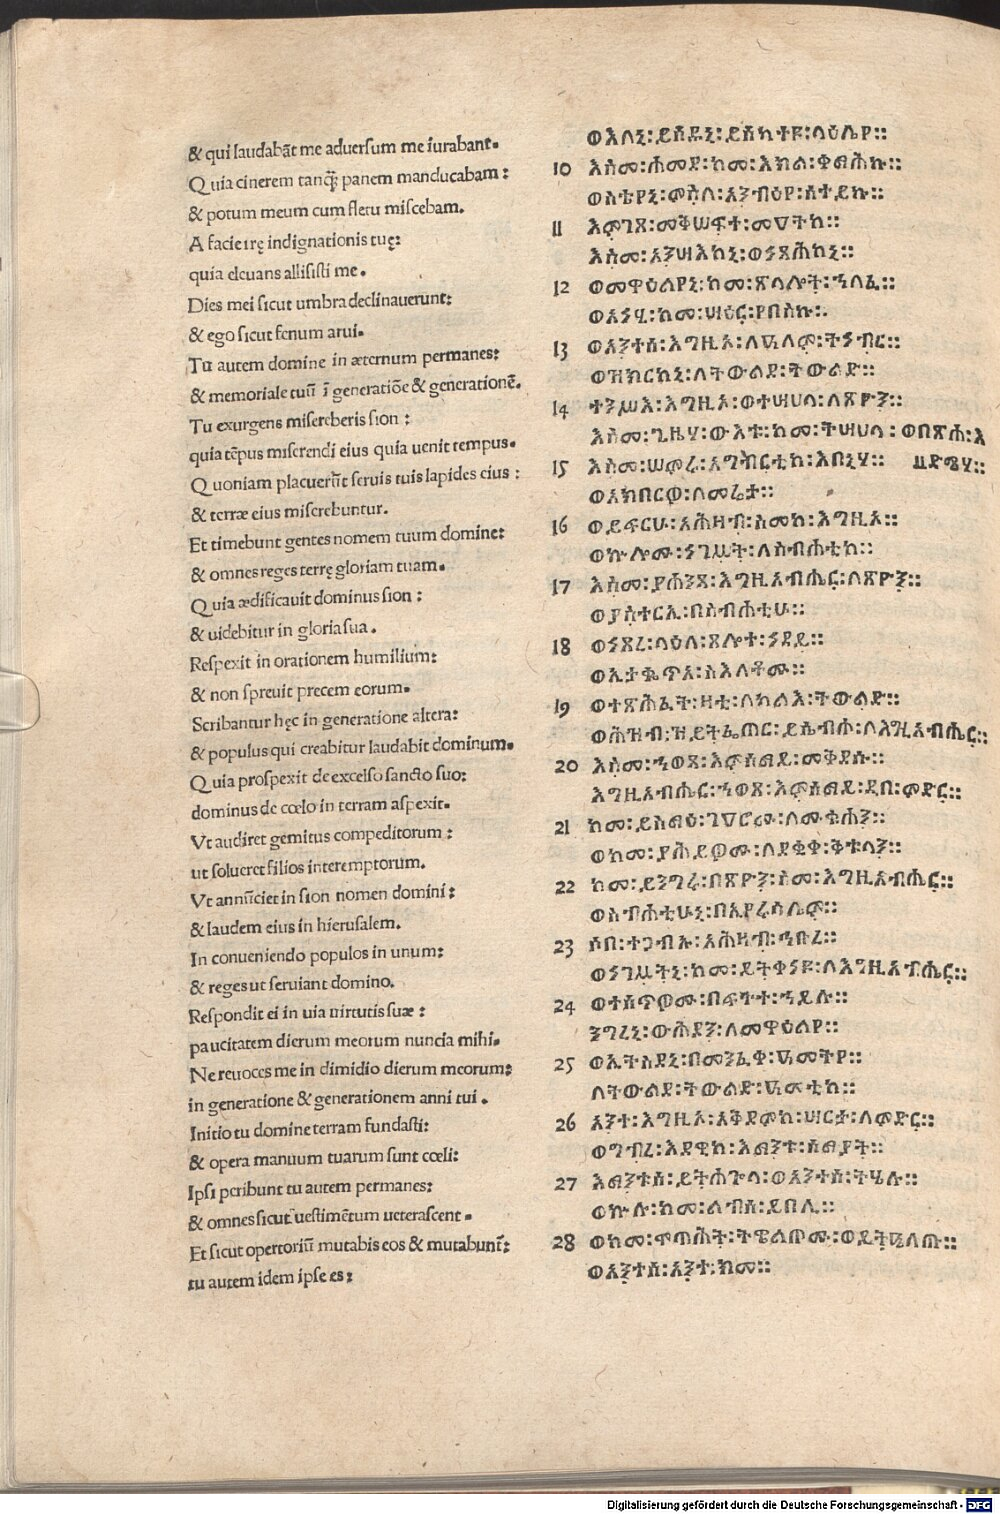 & qui laudabāt me aduersum me iurabant.
Quia cinerem tanq̄ȝ panem manducabam:
& potum meum cum fletu miscebam.
A facie irę indignationis tuę:
quia eleuans allisisti me.
Dies mei sicut umbra declinauerunt:
& ego sicut fenum arui.
Tu autem domine in æternum permanes:
& memoriale tuū ī generatiōe & generationē.
Tu exurgens misereberis sion:
quia tēpus miserendi eius quia uenit tempus.
Quoniam placuerūt seruis tuis lapides eius:
& terræ eius miserebuntur.
Et timebunt gentes nomem tuum domine:
& omnes reges terrę gloriam tuam.
Quia ædificauit dominus sion:
& uidebitur in gloria sua.
Respexit in orationem humilium:
& non spreuit precem eorum.
Scribantur hęc in generatione altera:
& populus qui creabitur laudabit dominum.
Quia prospexit de excelso sancto suo:
dominus de cœlo in terram aspexit.
Vt audiret gemitus compeditorum:
ut solueret filios interemptorum.
Vt annūciet in sion nomen domini:
& laudem eius in hierusalem.
In conueniendo populos in unum:
& reges ut seruiant domino.
Respondit ei in uia uirtutis suæ:
paucitatem dierum meorum nuncia mihi.
Ne reuoces me in dimidio dierum meorum:
in generatione & generationem anni tui.
Initio tu domine terram fundasti:
& opera manuum tuarum sunt cœli:
Ipsi peribunt tu autem permanes:
& omnes sicut uestimētum ueterascent.
Et sicut opertoriū mutabis eos & mutabunt̄:
tu autem idem ipse es:
ወእለኒ፡ ላዕሌየ።
10 እስመ፡ሐመደ፡ከመ፡እክል፡ቀማሕኩ።
ወስቴየኒ፡ምስለ፡አንብዕየ፡ሰተይኩ።
11 እምገጸ፡መቅሠፍተ፡መዓትከ።
እስመ፡አንሣእከኒ፡ወነጻሕከኒ።
12 ወመዋዕልየኒ፡ከመ፡ጽላሎት፡ኀለፈ።
ወአነሂ፡ከመ፡ሣዕር፡የበስኩ።
13 ወአንተሰ፡እግዚኦ፡ለዓለም፡ትነብር።
ወዝክርከኒ፡ለትውልደ፡ትውልድ።
14 ተንሥእ፡እግዚኦ፡ወተሣሀላ፡ለጽዮን።
እስመ፡ጊዜሃ፡ውእቱ፡ከመ፡ትሣሀላ፡ወበጽሐ፡እ
15 እስመ፡ሠምሩ፡አግብርቲከ፡እበኒሃ።
ወአክበርዎ፡ለመሬታ።
16 ወይፍርሁ፡አሕዛብ፡ስመከ፡እግዚኦ።
ወኵሎሙ፡ነገሥት፡ለስብሐቲከ።
17 እስመ፡ያሐንጻ፡እግዚአብሔር፡ለጽዮን።
ወያስተርኢ፡በስብሐቲሁ።
18 ወነጸረ፡ላዕለ፡ጸሎተ፡ነዳይ።
ወኢተቈጥዐ፡ስእለቶሙ።
19 ወተጽሕፈት፡ዛቲ፡ለካልእ፡ትውልድ።
ወሕዝብ፡ዘይትፈጠር፡ይሴብሖ፡ለእግዚአብሔር።
20 እስመ፡ኀወጸ፡እምሰማይ፡መቅደሱ።
እግዚአብሔር፡ኀወጸ፡እምሰማይ፡ዲበ፡ምድር።
21 ከመ፡ይስማዕ፡ገዓሮሙ፡ለሙቁሓን።
ወከመ፡ያሕይዎሙ፡ለደቂቀ፡ቅቱላን።
22 ከመ፡ይንግሩ፡በጽዮን፡ስመ፡እግዚአብሔር።
ወስብሐቲሁኒ፡በኢየሩሳሌም።
23 ሶበ፡ተጋብኡ፡አሕዛብ፡ኅቡረ።
ወነገሥትኒ፡ከመ፡ይትቀነዩ፡ለእግዚአብሔር።
24 ወተሰጥዎሙ፡በፍኖተ፡ኀይሉ።
ንግረኒ፡ውሕዶን፡ለመዋዕልየ።
25 ወኢትስደኒ፡በመንፈቀ፡ዓመትየ።
ለትውልደ፡ትውልድ፡ዓመቲከ።
26 አንተ፡እግዚኦ፡አቅደምከ፡ሣርሮታ፡ለምድር።
ወግብረ፡እደዊከ፡እማንቱ፡ሰማያት።
27 እማንቱሰ፡ይትሐጐላ፡ወአንተሰ፡ትሄሉ።
ወኵሉ፡ከመ፡ልብስ፡ይበሊ።
28 ወከመ፡ሞጣሕት፡ትዌልጦሙ፡ወይትዌለጡ።
ወአንተሰ፡አንተ፡ክመ።
Digitalisierung gefördert durch die Deutsche Forschungsgemeinschaft - DFG